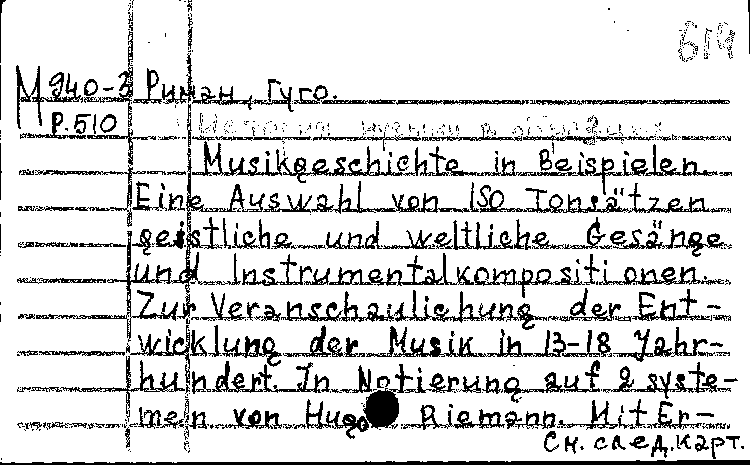 619
М 940-3 Риман, Гуго.
Р.510 История музыки в образцах
Musikgeschichte in Beispielen.
Eine Auswahl von 150 Tonsätzen
geistliche und weltliche Gesänge
und Instrumentalkompositionen.
Zur Veranschauliehung der Ent-
wicklung der Musik in 13-18 Jahr-
hundert. In Notierung auf 2 syste-
men von Hugo Riemann. Mit Er-
См. след. карт.